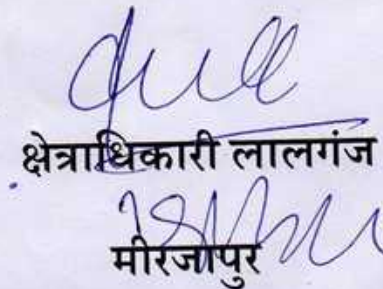 क्षेत्राधिकारी लालगंज
मीरजापुर